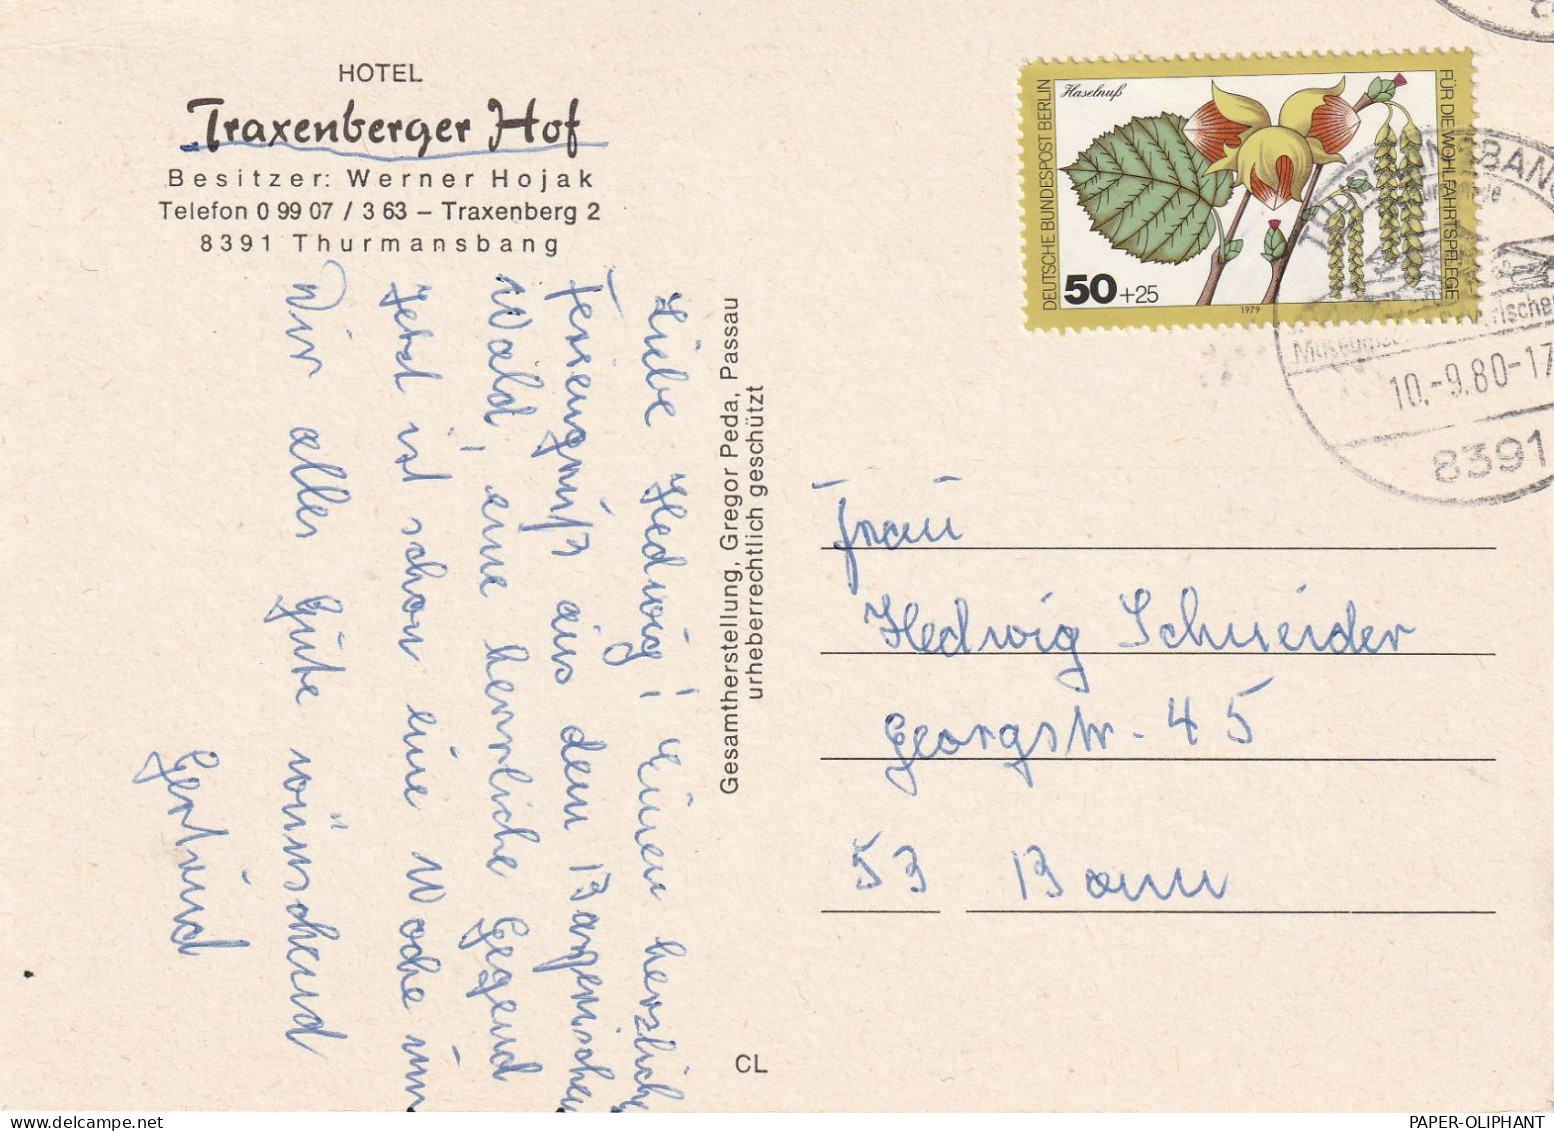 HOTEL
Traxenberger Hof
Besitzer: Werner Hojak
Telefon 0 99 07 / 3 63 – Traxenberg 2
8391 Thurmansbang
Liebe Hedwig! Einen herzlichen
Feriengruß aus dem Bayerischen
Wald, eine herrliche Gegend
Jetzt ist schon eine Woche um
Wir alles Gute wünschend
Gertrud
Gesamtherstellung, Gregor Peda, Passau
urheberrechtlich geschützt
CL
Haselnuß
DEUTSCHE BUNDESPOST BERLIN
FÜR DIE WOHLFAHRTSPFLEGE
50 +25
1979
THURMANSBANG
10.-9.80-17
8391
Frau
Hedwig Schneider
Georgstr. 45
53 Bonn
PAPER-OLIPHANT